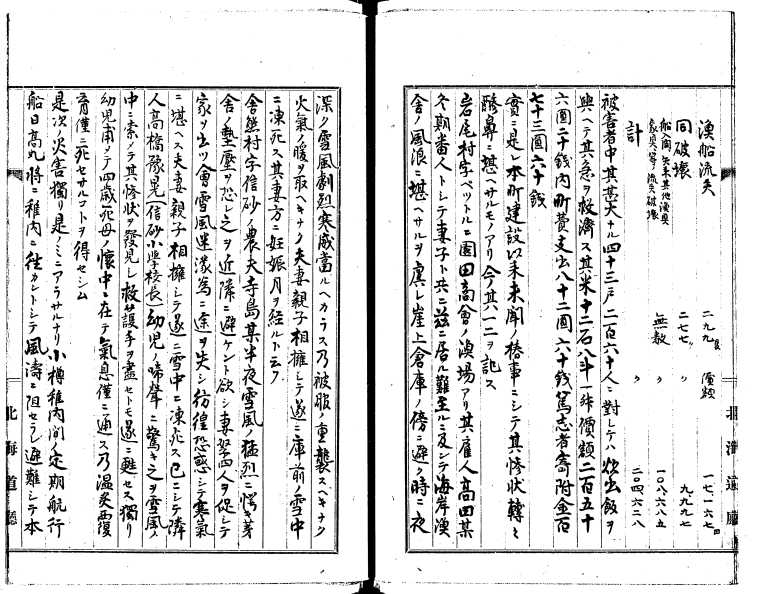 漁船流失 二九九隻 価額 一七一六七円
同破壊 二七七〃 〃 九九九七
船入澗 失 其他漁具
家具等ノ流失破壊 無数 〃 一〇八六八五
計 二〇四六二八
被害者中其甚大ナル四十三戸二百六十人ニ對シテハ炊出飯ヲ
與ヘテ其急ヲ救濟ス其米十二石八斗一升價額二百五十
六圓二十錢内町費支出八十二圓六十錢篤志者寄附金百
七十三圓六十錢
實ニ是レ本町建設以来未聞ノ椿事ニシテ其惨状轉々
酸鼻ニ堪ヘサルモノアリ今其一二ヲ記ス
岩尾村字ベットルニ園田商會ノ漁場アリ其雇人高田某
冬期番人トシテ妻子ト共ニ茲ニ居ル難至ルニ及ンテ海岸漁
舎ノ風浪ニ堪ヘサルヲ虞レ崖上倉庫ノ傍ニ避ク時ニ夜
深ク雪風劇烈寒威當ルヘカラス乃被服ノ重襲スヘキナク
火氣ノ暖ヲ取ヘキナク夫妻親子相擁シテ遂ニ庫前ノ雪中
ニ凍死ス其妻方ニ妊娠 月ヲ経ルト云フ
舎熊村字信砂ノ農夫寺島某半夜雪風ノ猛烈ニ愕キ茅
舎ノ墊壓ヲ恐レ之ヲ近隣ニ避ケント欲シ妻孥四人ヲ促シテ
家ヲ出ツ會雪風迷濛為ニ途ヲ失シ彷徨恐惑シテ寒氣
ニ堪ヘス夫妻親子相擁シテ遂ニ雪中ニ凍死ス已ニシテ隣
人高橋豫晃(信砂小学校長)幼児ノ啼聲ニ驚キ之ヲ雪風ノ
中ニ索メテ其惨状ヲ發見シ救護手ヲ盡セトモ遂ニ甦セス獨リ
幼児甫メテ四歳死母ノ懐中ニ在テ氣息僅ニ通ス乃温炙復
育僅ニ死セサルコトヲ得セシム
是次ノ災害獨リ是ノミニアラサルナリ小樽稚内間ノ定期航行
船日高丸将ニ稚内ニ往カントシテ風濤ニ阻セラレ避難シテ本
北海道廳
北海道廳